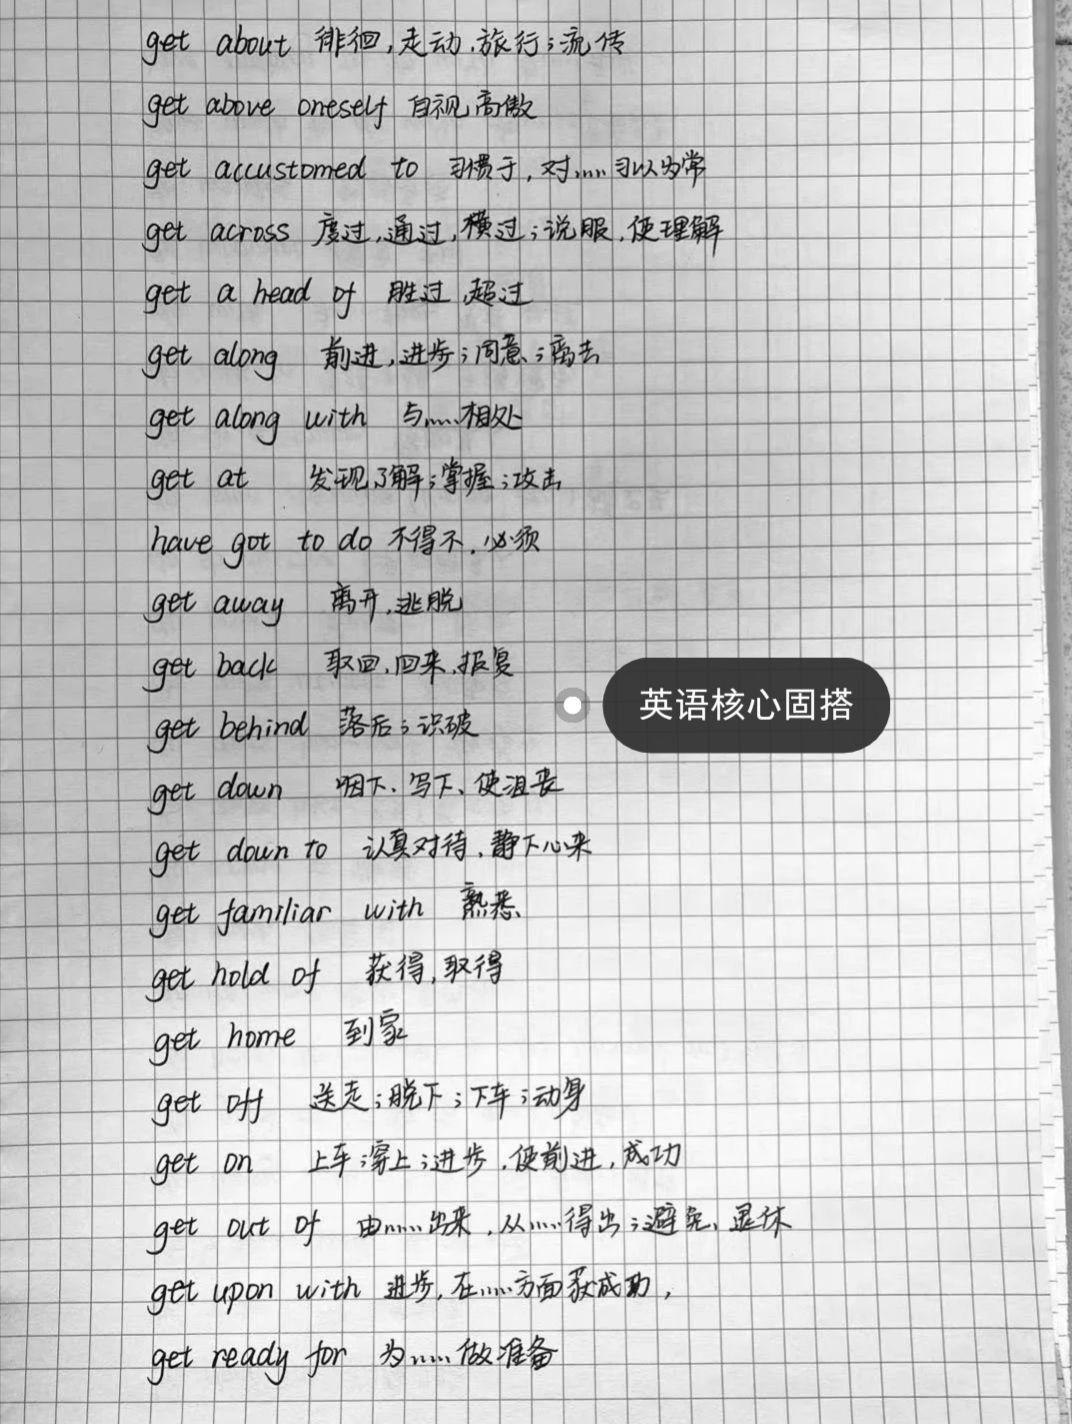 get about 徘徊,走动,旅行;流传
get above oneself 自视高傲
get accustomed to 习惯于,对……习以为常
get across 度过,通过,横过;说服,使理解
get a head of 胜过,超过
get along 前进,进步;同意;离去
get along with 与……相处
get at 发现,了解;掌握;攻击
have got to do 不得不,必须
get away 离开,逃脱
get back 取回,回来,报复
英语核心固搭
get behind 落后;识破
get down 咽下、写下、使沮丧
get down to 认真对待,静下心来
get familiar with 熟悉
get hold of 获得,取得
get home 到家
get off 送走;脱下;下车;动身
get on 上车;穿上;进步,使前进,成功
get out of 由……出来,从……得出;避免、退休
get upon with 进步,在……方面获成功,
get ready for 为……做准备